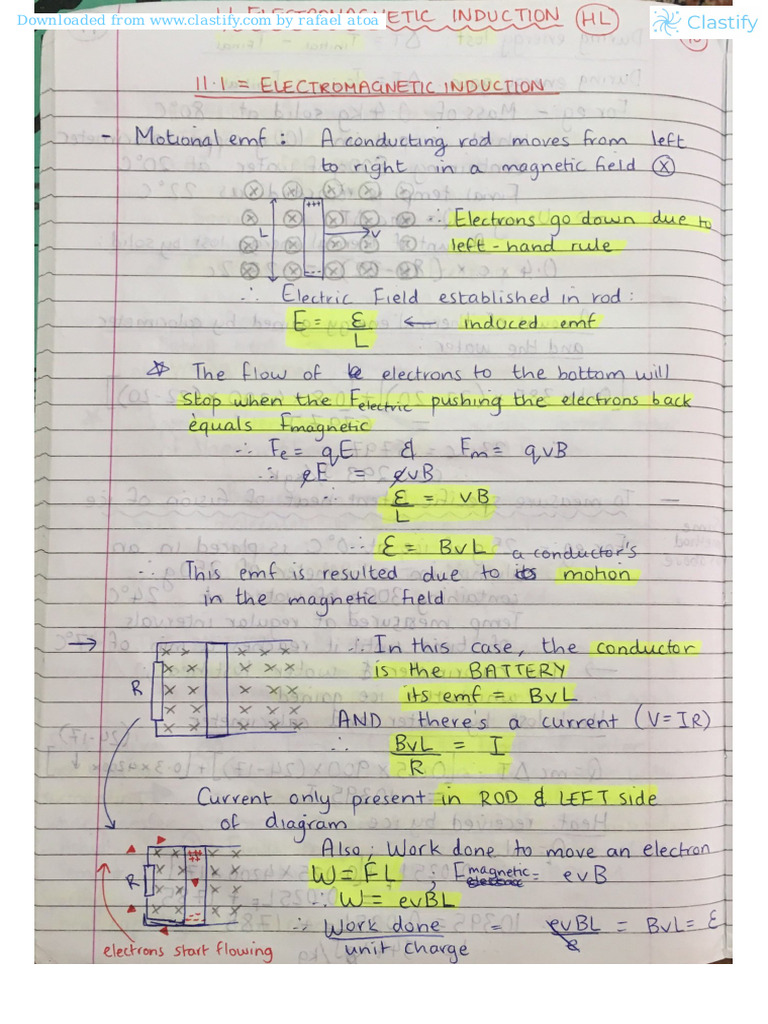 Downloaded from www.clastify.com by rafael atoa
Clastify
11 ELECTROMAGNETIC INDUCTION (HL)
11.1 = ELECTROMAGNETIC INDUCTION
- Motional emf : A conducting rod moves from left
to right in a magnetic field ⊗
+++
L v
---
∴ Electrons go down due to
left-hand rule
∴ Electric Field established in rod :
E = ε/L ← induced emf
☆ The flow of electrons to the bottom will
stop when the Felectric pushing the electrons back
equals Fmagnetic
∴ Fe = qE & Fm = qvB
∴ qE = qvB
∴ ε/L = vB
∴ ε = BvL
∴ This emf is resulted due to a conductor's motion
in the magnetic field
→ R
∴ In this case, the conductor
is the BATTERY
its emf = BvL
AND there's a current (V=IR)
∴ BvL/R = I
Current only present in ROD & LEFT side
of diagram
R
electrons start flowing
Also; Work done to move an electron
W = FL ; Fmagnetic = evB
∴ W = evBL
∴ Work done/unit charge = evBL/e = BvL = ε